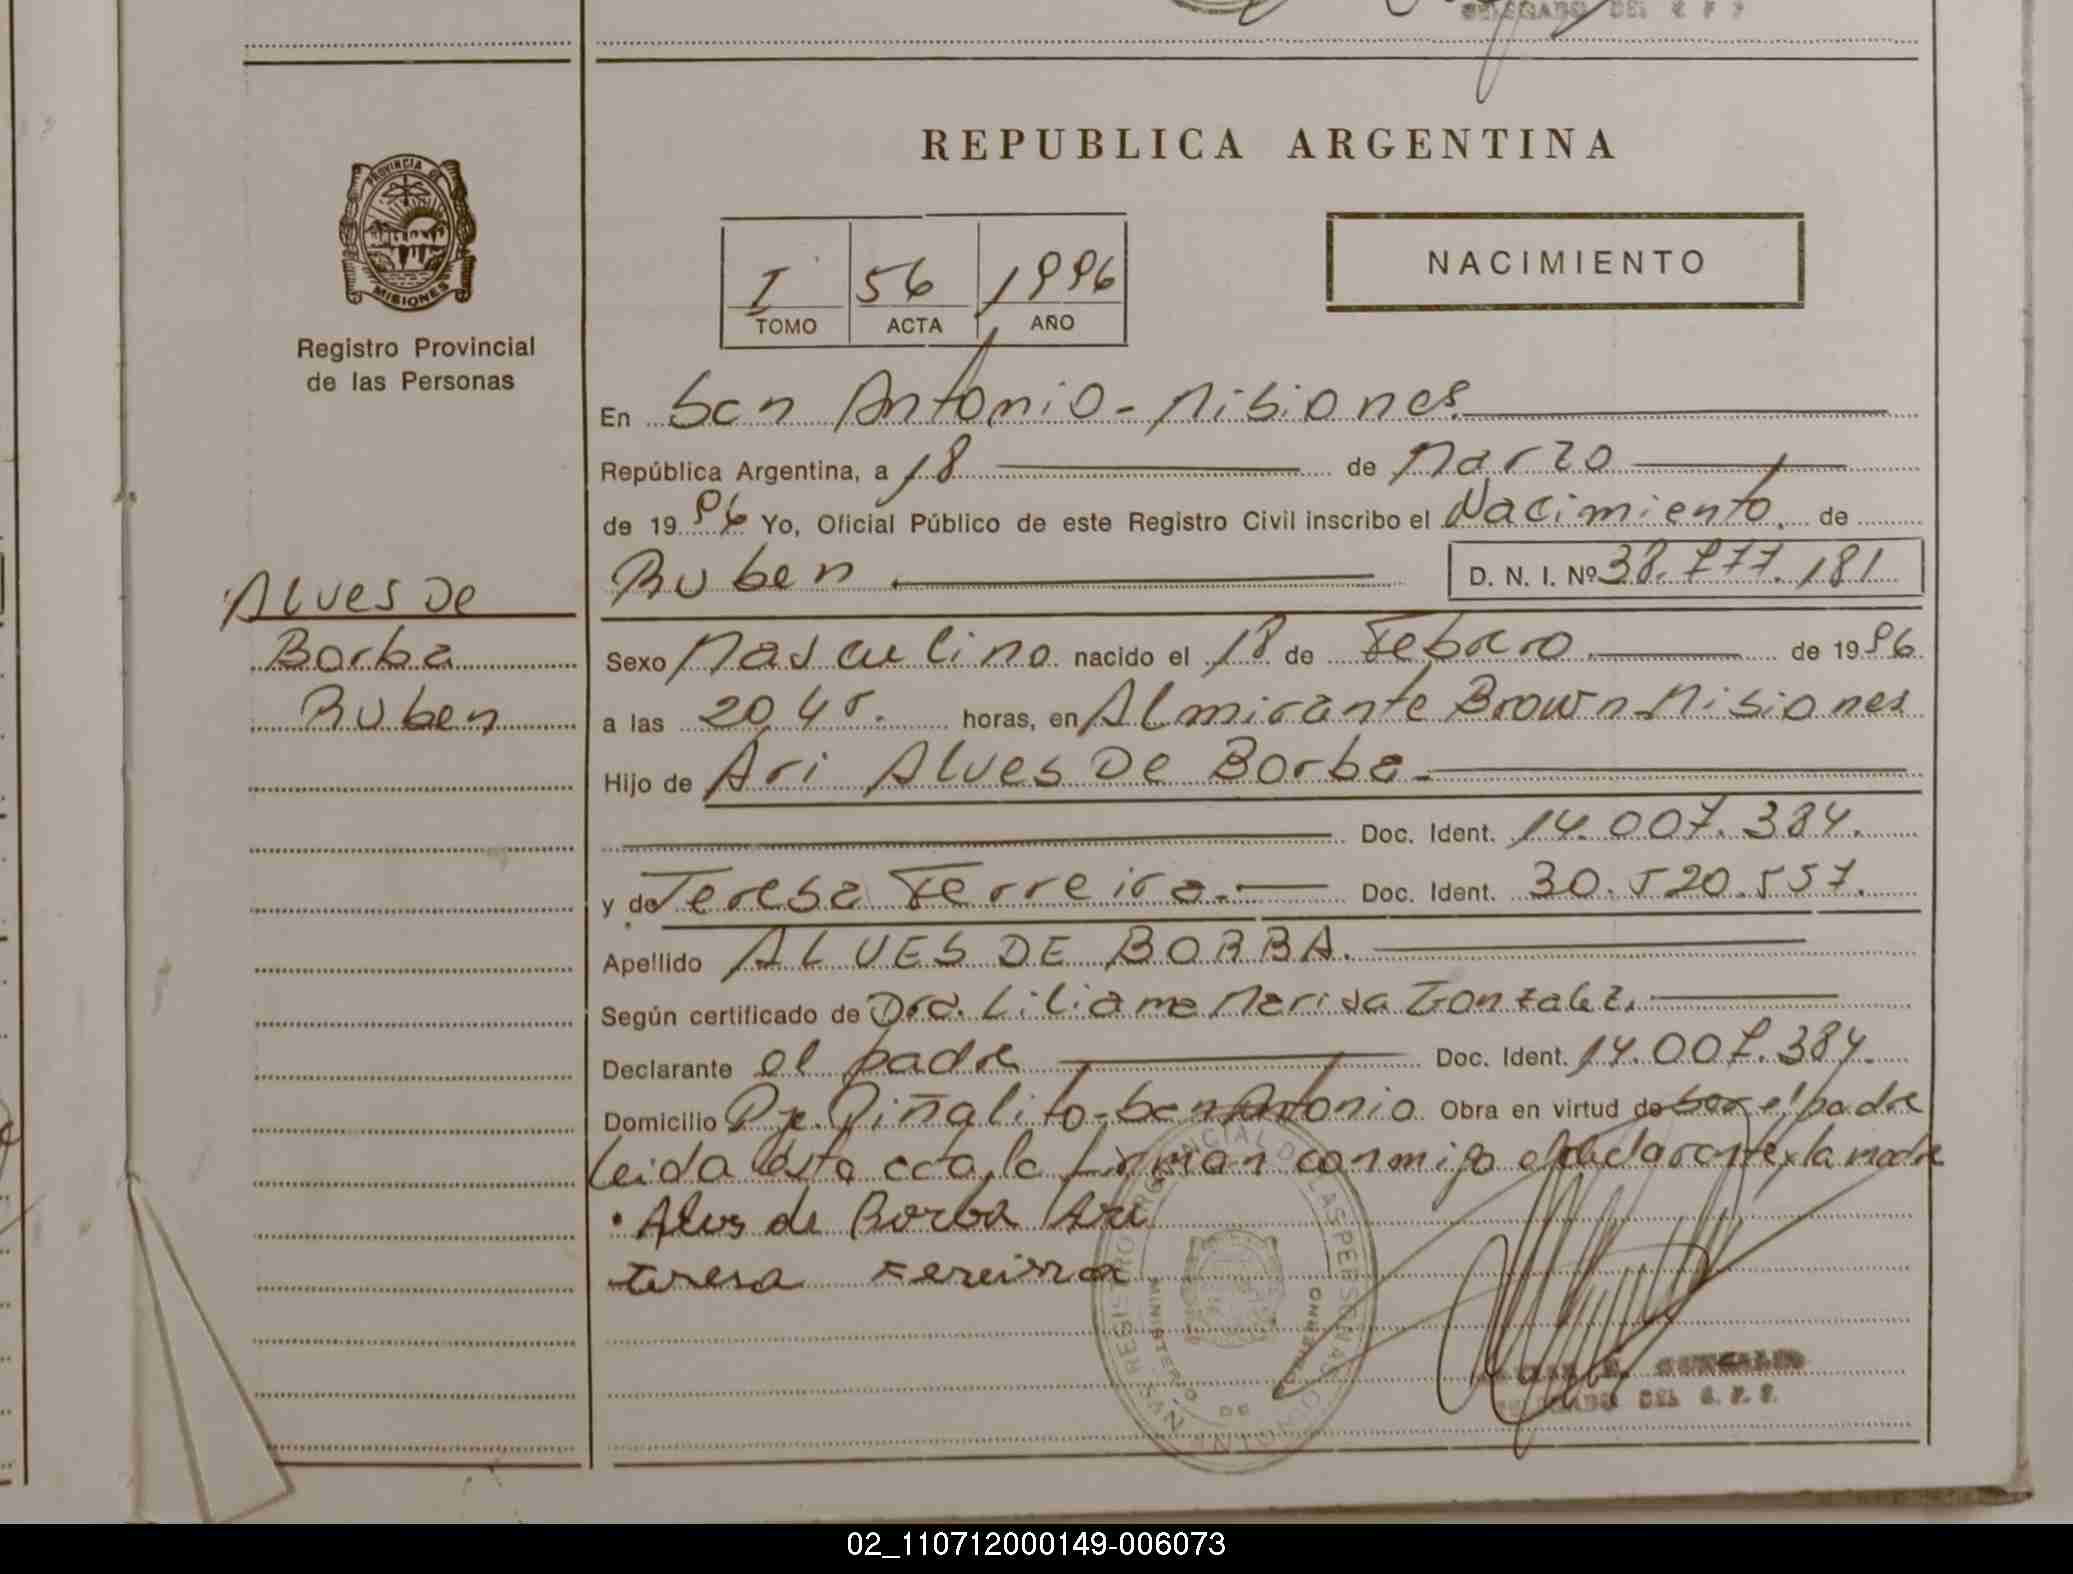 DELEGADO DEL R P P
REPUBLICA ARGENTINA
PROVINCIA DE
MISIONES
Registro Provincial
de las Personas
I 56 1996
TOMO ACTA AÑO
NACIMIENTO
En San Antonio - Misiones
República Argentina, a 18 de Marzo
de 1996 Yo, Oficial Público de este Registro Civil inscribo el Nacimiento. de
Ruben D. N. I. Nº 38.777.181
Alves De
Borba
Ruben
Sexo Masculino nacido el 18 de Febrero de 1996
a las 20,45. horas, en Almirante Brown - Misiones
Hijo de Ari Alves De Borba -
Doc. Ident. 14.007.384.
y de Teresa Ferreira. - Doc. Ident. 30.520.557.
Apellido ALVES DE BORBA.
Según certificado de Dra. Liliana Marisa Gonzalez.
Declarante el padre Doc. Ident. 14.007.384.
Domicilio Pje. Piñalito - San Antonio Obra en virtud de ser el padre
Leida esta acta, la firman conmigo el declarante y la madre
Alves de Borba Ari
teresa Fereirra
REGISTRO PROVINCIAL DE LAS PERSONAS
MINISTERIO DE GOBIERNO
SAN ANTONIO
DELEGADO DEL R. P. P.
02_110712000149-006073